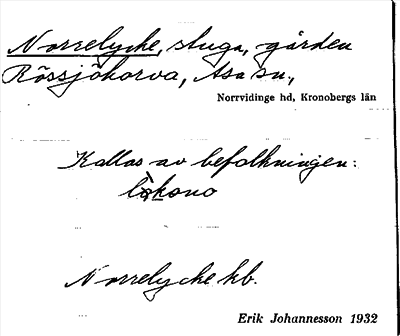 Norrelycke, stuga, gården
Rössjökorva, Asa sn,
Norrvidinge hd, Kronobergs län
Kallas av befolkningen:
Norrelycke kb.
Erik Johannesson 1932